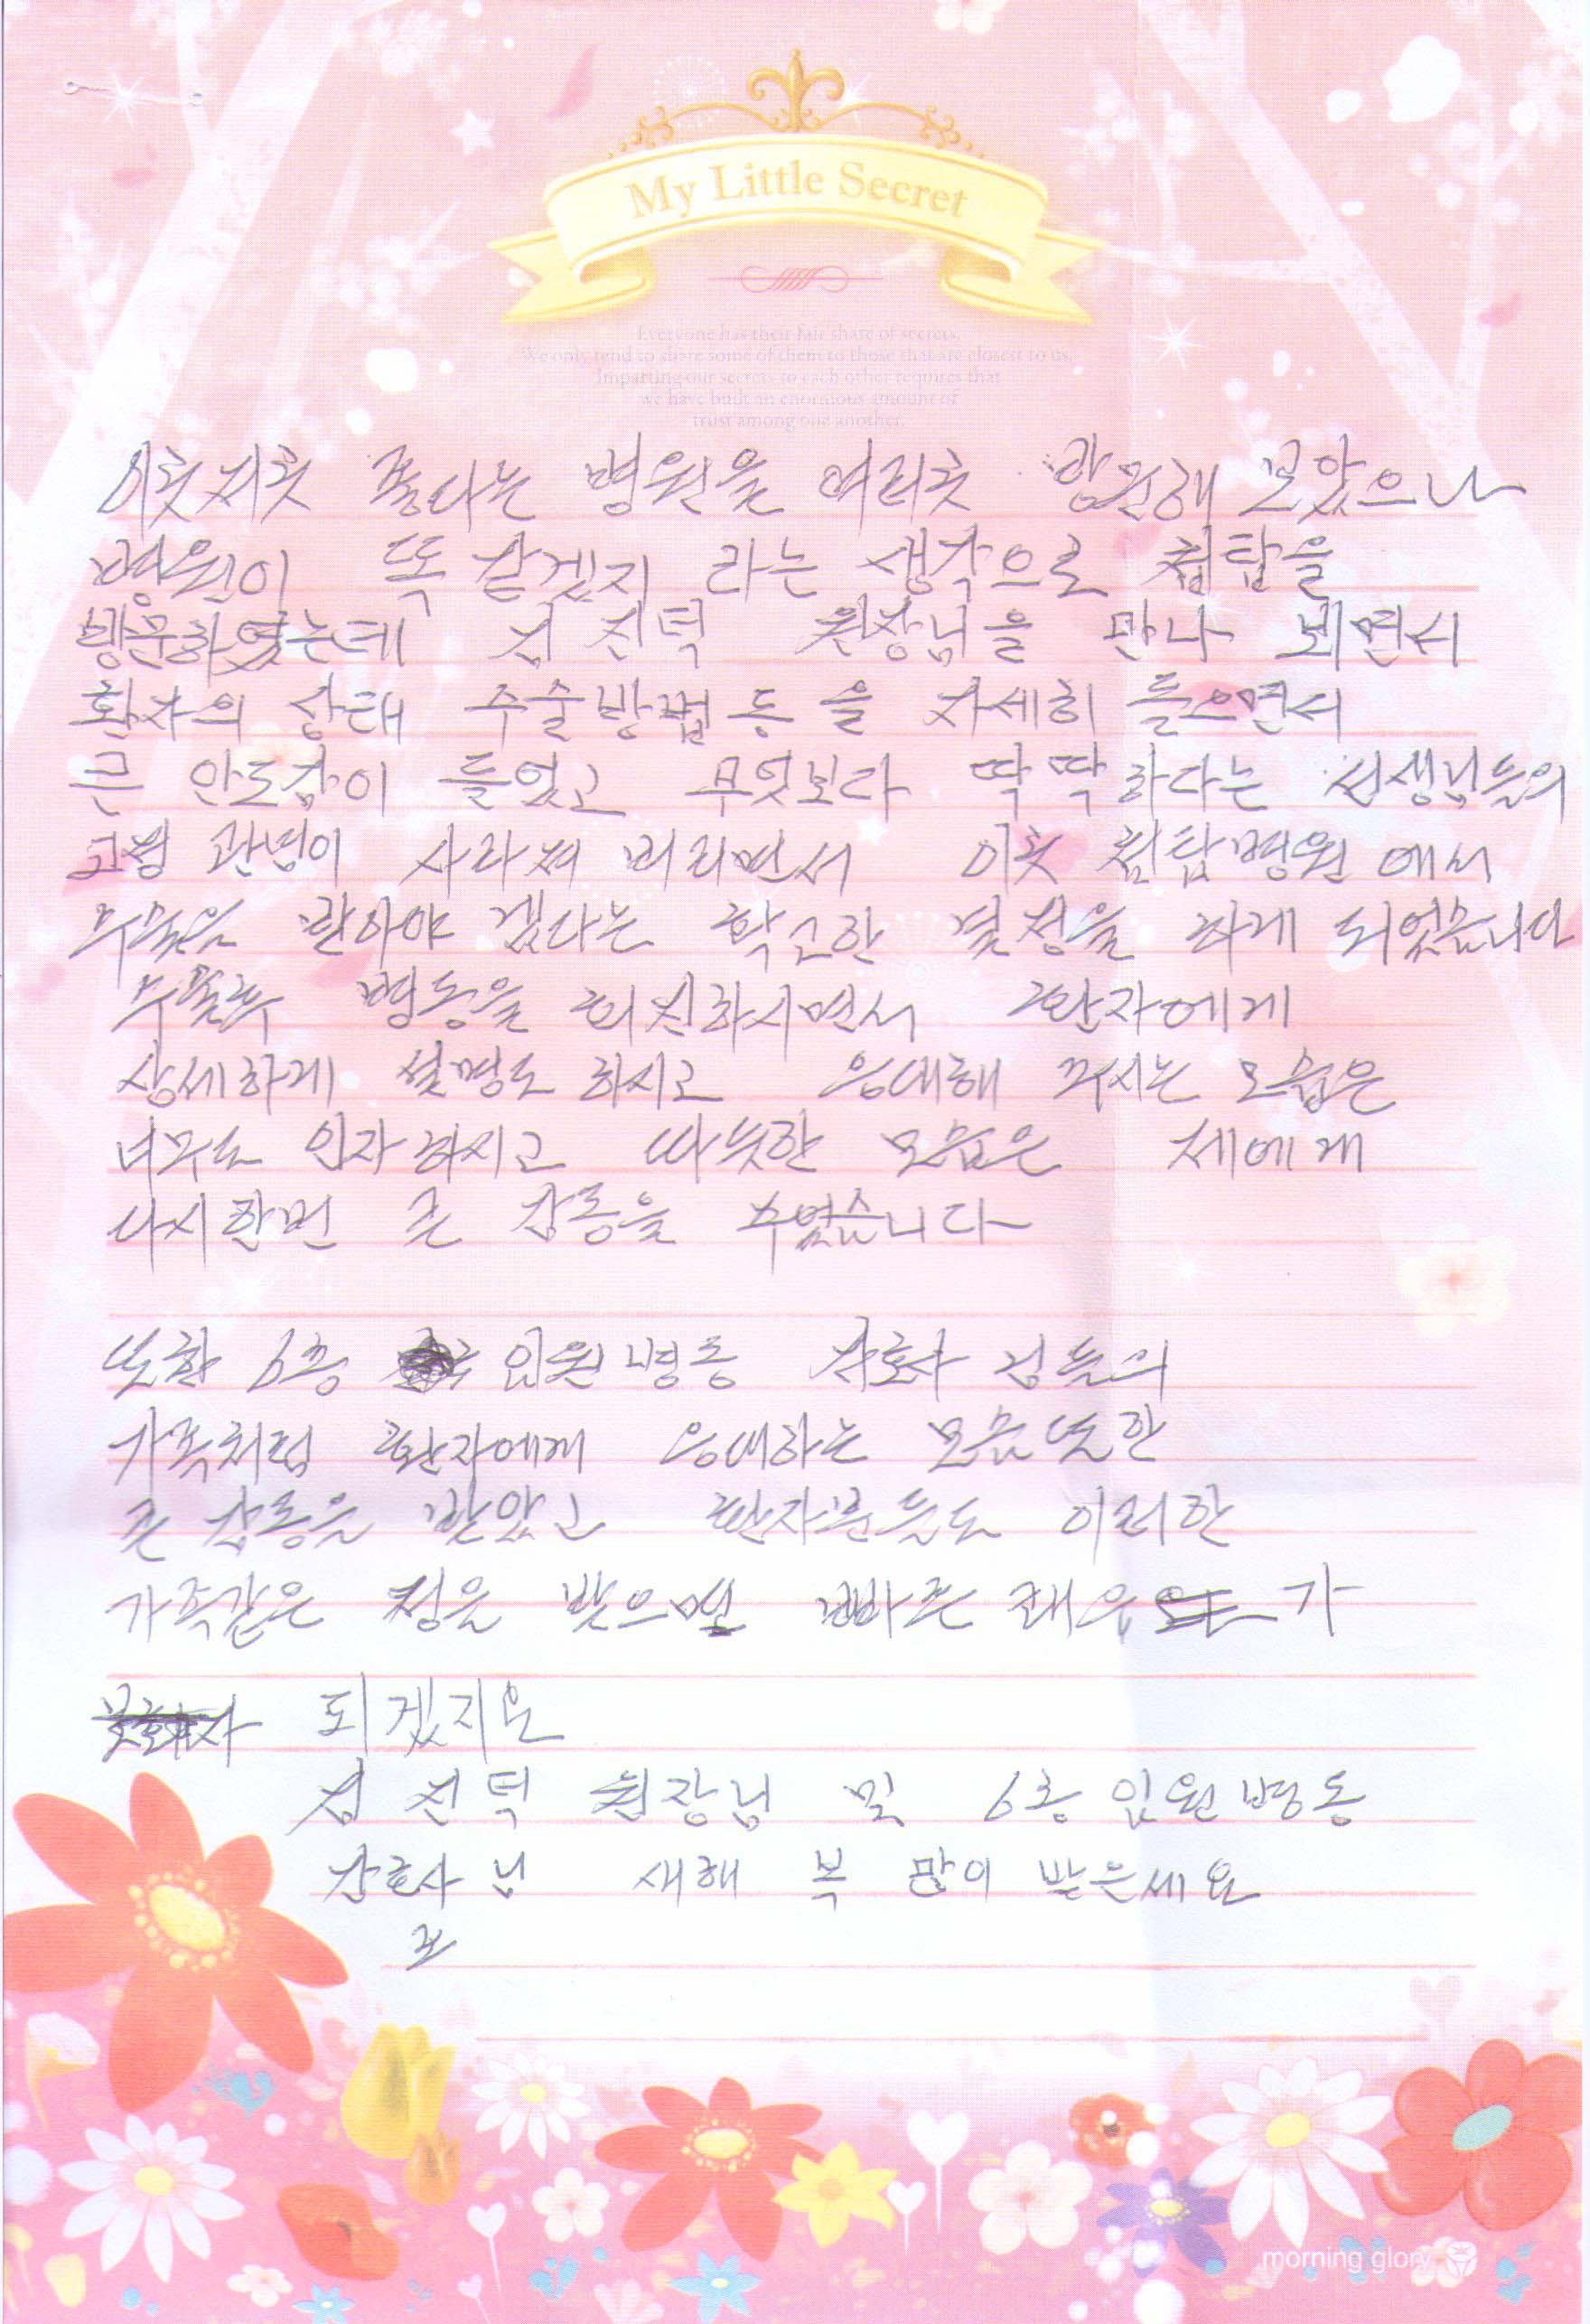 My Little Secret
Everyone has their fair share of secrets.
We only tend to share some of them to those that are closest to us.
Imparting our secrets to each other requires that
we have built an enormous amount of
trust among one another.
이곳저곳 좋다는 병원을 여러곳 방문해 보았으나
병원이 똑 같겠지 라는 생각으로 첨탑을
방문하였는데 서 진덕 원장님을 만나 뵈면서
환자의 상태 수술방법 등 을 자세히 들으면서
큰 안도감이 들었고 무엇보다 딱딱하다는 선생님들의
고정 관념이 사라져 버리면서 이곳 첨탑병원 에서
수술을 받아야 겠다는 확고한 결정을 하게 되었습니다
수술후 병동을 회진하시면서 환자에게
상세하게 설명도 하시고 응대해 주시는 모습은
너무도 인자하시고 따뜻한 모습은 저에게
다시한번 큰 감동을 주었습니다
또한 6층 입원병동 간호사 님들의
가족처럼 환자에게 응대하는 모습또한
큰 감동을 받았고 환자분들도 이러한
가족같은 정을 받으며 빠른 쾌유 가
되겠지요
진덕 원장님 및 6층 입원병동
간호사 님 새해 복 많이 받으세요
morning glory